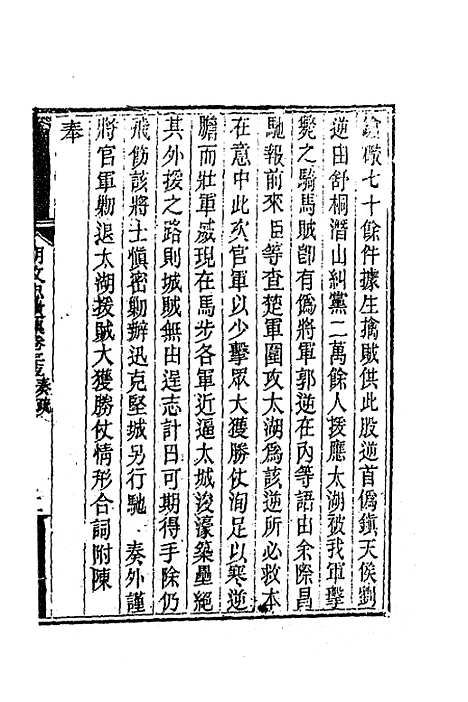 僞檄七十餘件據生擒賊供此股逆首僞鎭天侯劉
逆由舒桐潛山糾黨二萬餘人援應太湖被我軍擊
斃之騎馬賊卽有僞將軍郭逆在內等語由余際昌
馳報前來臣等查楚軍圍攻太湖爲該逆所必救本
在意中此次官軍以少擊眾大獲勝仗洵足以寒逆
膽而壯軍威現在馬步各軍近逼太城浚濠築壘絕
其外援之路則城賊無由逞志計日可期得手除仍
飛飭該將士愼密勦辦迅克堅城另行馳 奏外謹
將官軍勦退太湖援賊大獲勝仗情形合詞附陳
奏
胡文忠遺集卷 奏疏